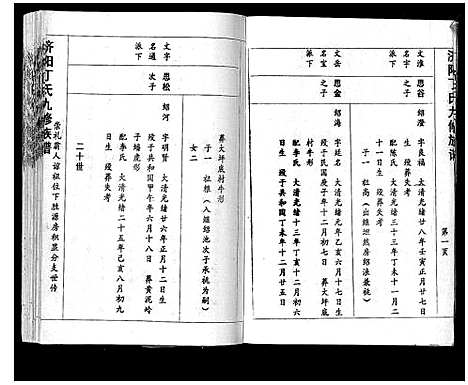 济阳丁氏九修族谱
第一页
文淮 思谷
名宇 之子
派下
绍澄
字良福 大清光绪廿八年壬寅正月廿七日
生 殁葬失考
配陈氏 大清光绪三十三年丁未十一月二
十一日生 殁葬失考
子一 社高
文岳 思金
名宝 之子
派下
绍海
字廷名 大清光绪元年乙亥六月十七日生
殁于民国庚子年十二月初七日 葬大坪底
村牛形
配李氏 大清光绪十三年丁亥十二月初六
日生 殁于共和国丁未年十二月廿五日
葬大坪底村牛形
子一 社根（八组绍池次子承祧为嗣）
女二
文字 思松
名通 次子
派下
绍河
字明贤 大清光绪廿二年 正月十二日生
殁于共和国甲午年六月十八日 葬黄泥岭
子蜡虎形
配李氏 大清光绪二十五年己亥八月初九
日生 殁葬失考
二十世
崇礼翁入绍祖位下胜源房积益分支世传
济阳丁氏九修族谱